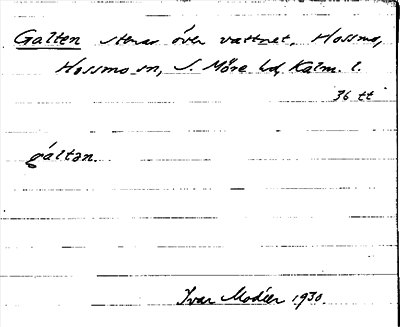 Galten stenar över vattnet, Hossmo,
Hossmo sn, S. Möre hd, Kalm. l.
36 tt
gáltən.
Ivar Modéer 1930.